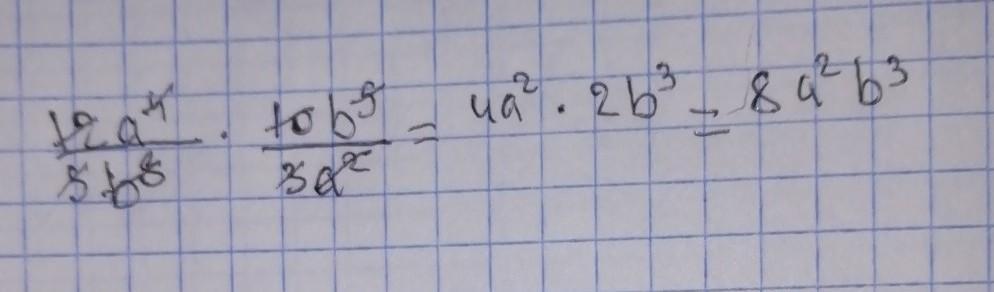 12a⁴/5b⁸ · 10b⁵/3a² = 4a² · 2b³ = 8a²b³